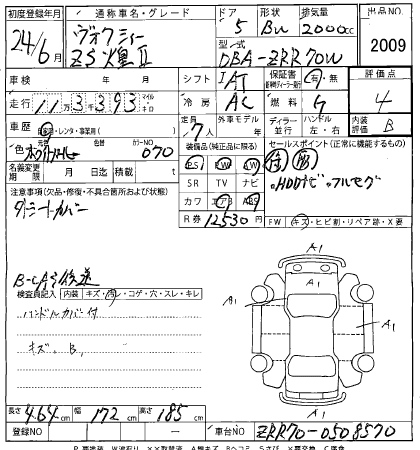 初度登録年月 通称車名・グレード ドア 形状 排気量 出品No.
24/6月 ヴォクシー ZS 煌Ⅱ 5 Bu 2000cc 2009
型式 DBA-ZRR70W
車検 シフト IAT 保証書 有・無 評価点
走行 11万3千393 マイル キロ 冷房 AC 燃料 G 4
車歴 自家用・レンタ・事業用( ) 定員 7人 外車モデル ディーラー 並行 ハンドル 左・右 内装 B
色 ホワイトパール カラーNO 070 装備品(純正品に限る) セールスポイント(正常に機能するもの)
名義変更期限 月 日迄 積載 t PS PW AW
注意事項(欠品・修復・不具合箇所および状態) SR TV ナビ HDDナビ フルセグ
カワ エアB ABS
R券 12530円 FW キズ・ヒビ割・リペア跡・X要
B-CAS後送
検査員記入 内装 キズ・汚レ・コゲ・穴・スレ・キレ
ハンドルカバー付
キズ、B、
A1
A1
A1
A1
A1
長さ 464cm 幅 172cm 高さ 185cm
登録NO — 車台No ZRR70-0508570